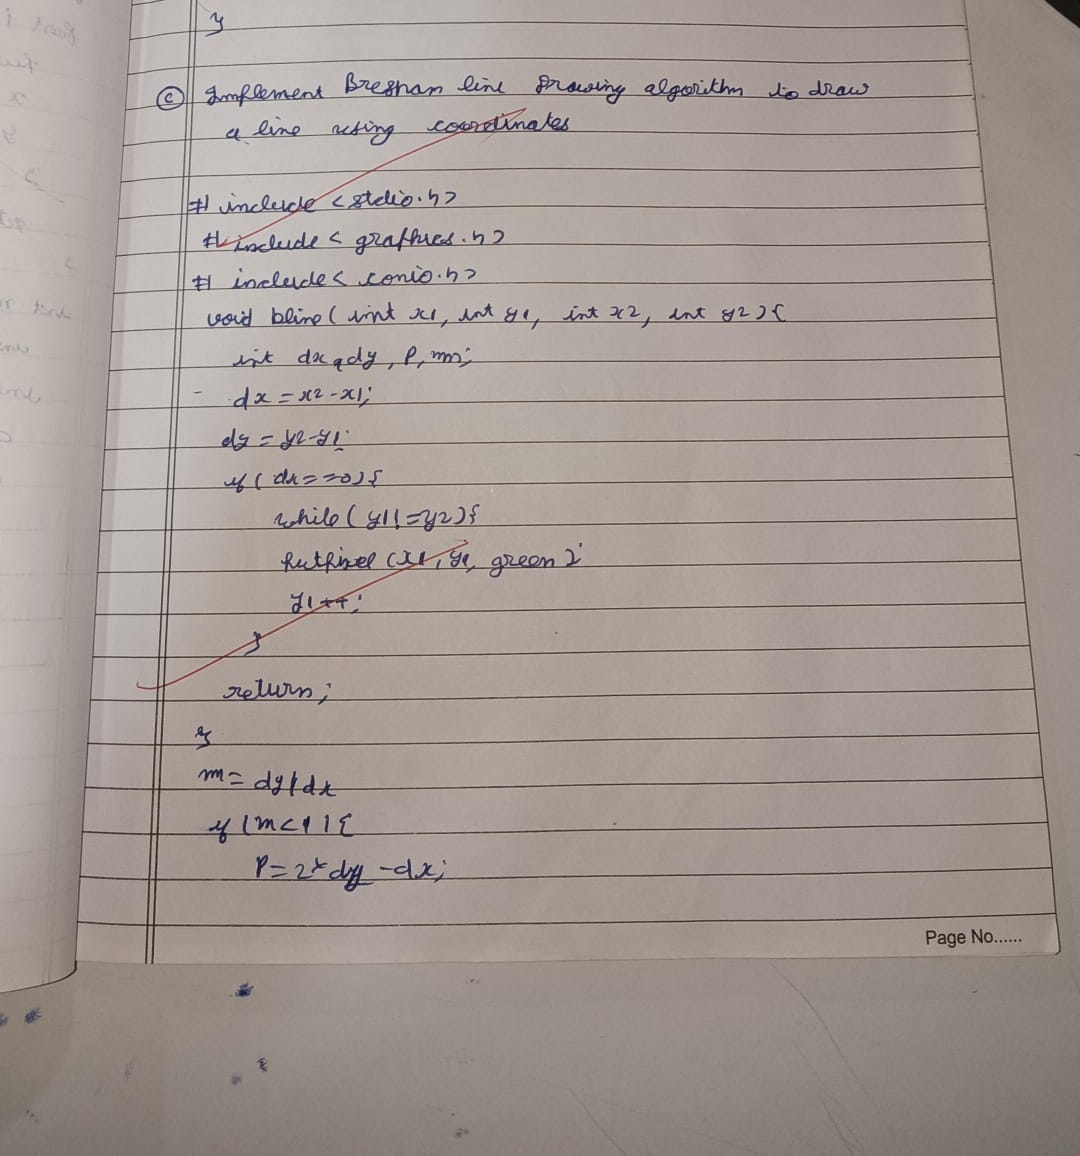 }
(c) Implement Bresnam line Drawing algorithm to draw
a line using coordinates
# include <stdio.h>
# include < graphics.h>
# include < conio.h>
void bline ( int x1, int y1, int x2, int y2 ) {
int dx, dy, P, m;
dx = x2 - x1;
dy = y2 - y1;
if ( dx == 0 ) {
while ( y1 != y2 ) {
putpixel (x1, y1, green );
y1++;
}
return;
}
m = dy/dx
if (m<1) {
P = 2*dy - dx;
Page No......